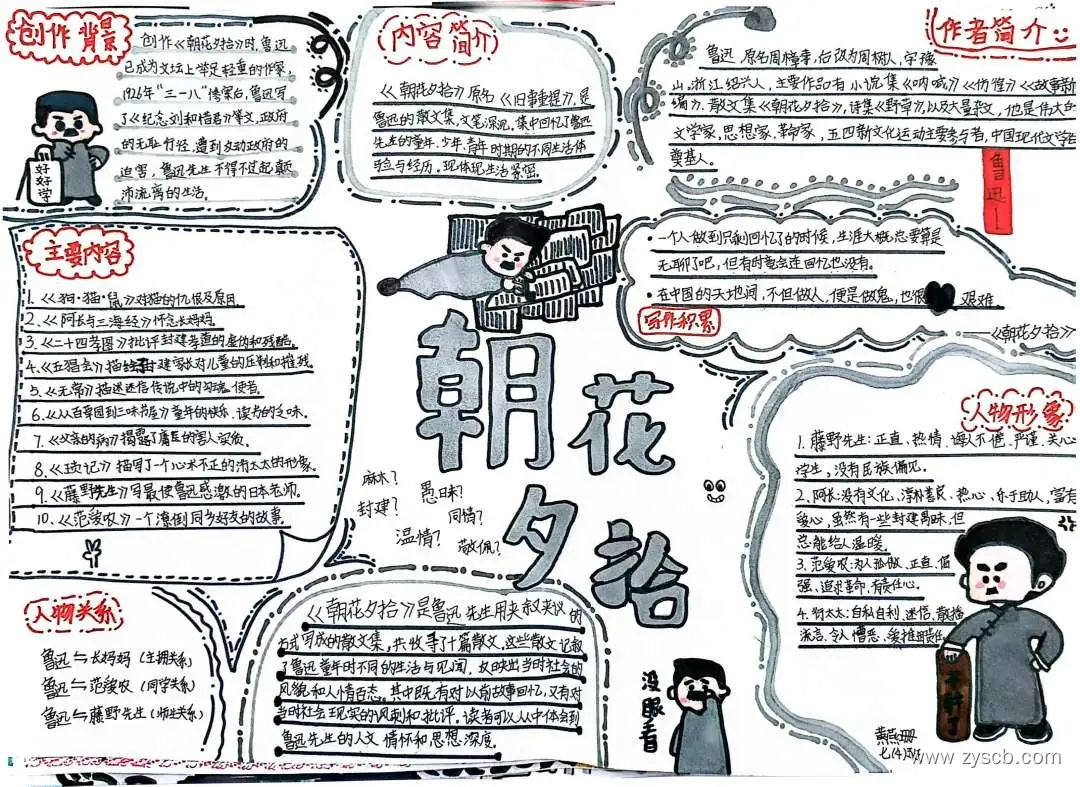 创作背景
创作《朝花夕拾》时,鲁迅
已成为文坛上举足轻重的作家,
1926年“三一八”惨案后,鲁迅写
了《纪念刘和珍君》等文,政府
的无耻行径,遭到反动政府的
迫害,鲁迅先生不得不过起颠
沛流离的生活。
好好学
内容简介
《朝花夕拾》原名《旧事重提》,是
鲁迅的散文集,文笔深沉,集中回忆了鲁迅
先生的童年、少年、青年时期的不同生活体
验与经历,现体现生活紧密。
作者简介
鲁迅 原名周樟寿,后改为周树人,字豫
山,浙江绍兴人,主要作品有小说集《呐喊》《彷徨》《故事新
编》,散文集《朝花夕拾》,诗集《野草》,以及大量杂文,他是伟大的
文学家,思想家,革命家,五四新文化运动主要参与者,中国现代文学的
奠基人。
鲁迅
主要内容
1.《狗·猫·鼠》对猫的仇恨及原因。
2.《阿长与三海经》怀念长妈妈。
3.《二十四孝图》批评封建孝道的虚伪和残酷。
4.《五猖会》描绘封建家长对儿童的压制和摧残。
5.《无常》描述迷信传说中的勾魂使者。
6.《从百草园到三味书屋》童年的快乐、读书的乏味。
7.《父亲的病》揭露了庸医的害人实质。
8.《琐记》描写了一个心术不正的衍太太的形象。
9.《藤野先生》写最使鲁迅感激的日本老师。
10.《范爱农》一个潦倒同乡好友的故事。
·一个人做到只剩回忆了的时候,生涯大概总要算是
无聊了吧,但有时竟会连回忆也没有。
·在中国的天地间,不但做人,便是做鬼,也很 艰难。
写作积累
——《朝花夕拾》
朝花夕拾
麻木?
愚昧?
封建?
同情?
温情?
敬佩?
人物形象
1. 藤野先生:正直、热情、诲人不倦、严谨、关心
学生,没有民族偏见。
2. 阿长:没有文化、淳朴善良、热心、乐于助人,富有
爱心,虽然有一些封建愚昧,但
总能给人温暖。
3. 范爱农:为人孤傲、正直、倔
强、追求革命,有责任心。
4. 衍太太:自私自利、迷信、散播
流言、令人憎恶、爱推责任。
人物关系
鲁迅⇋长妈妈(主拥关系)
鲁迅⇋范爱农(同学关系)
鲁迅⇋藤野先生(师生关系)
《朝花夕拾》是鲁迅先生用夹叙夹议的
方式写成的散文集,共收寻了十篇散文。这些散文记叙
了鲁迅童年时不同的生活与见闻,反映出当时社会的
风貌和人情百态。其中既有对以前故事回忆,又有对
当时社会现实的讽刺和批评。读者可以从中体会到
鲁迅先生的人文情怀和思想深度。
没眼看
七(4)班
www.zyscb.com